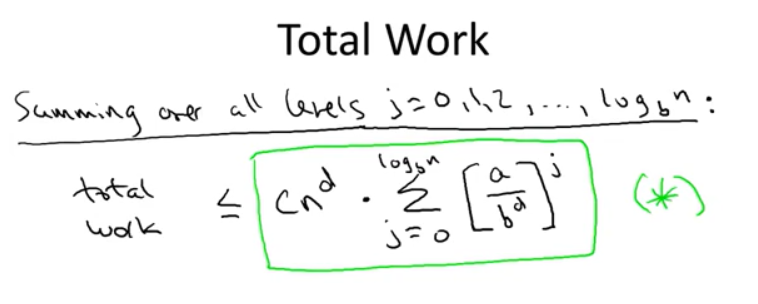 Total Work
Summing over all levels j=0,1,2,..., log_b n :
total work ≤ cn^d · \sum_{j=0}^{log_b n} [a/b^d]^j (*)